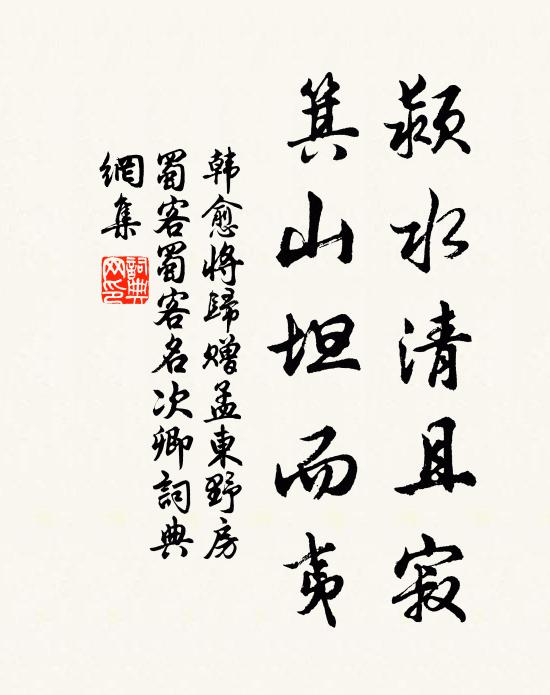 颍水清且寂
箕山坦而夷
韩愈将歸赠孟東野房
蜀客蜀客名次卿詞典
網集
詞典网印